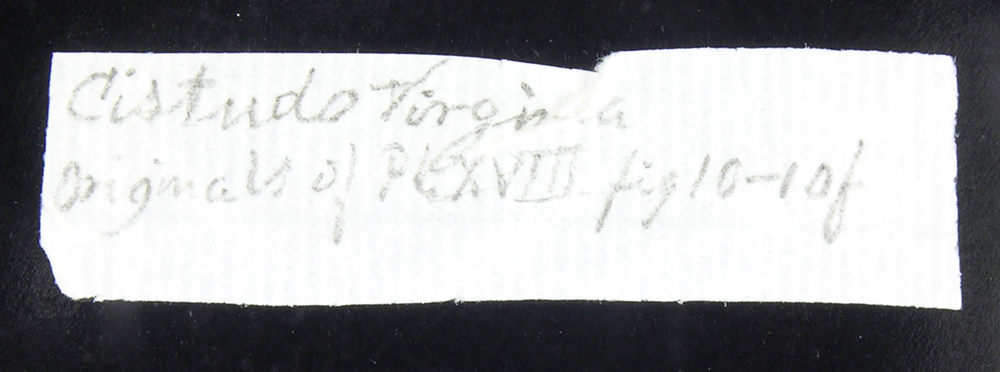 Cistudo Virginea
Originals of Pl XVIII fig 10-10f